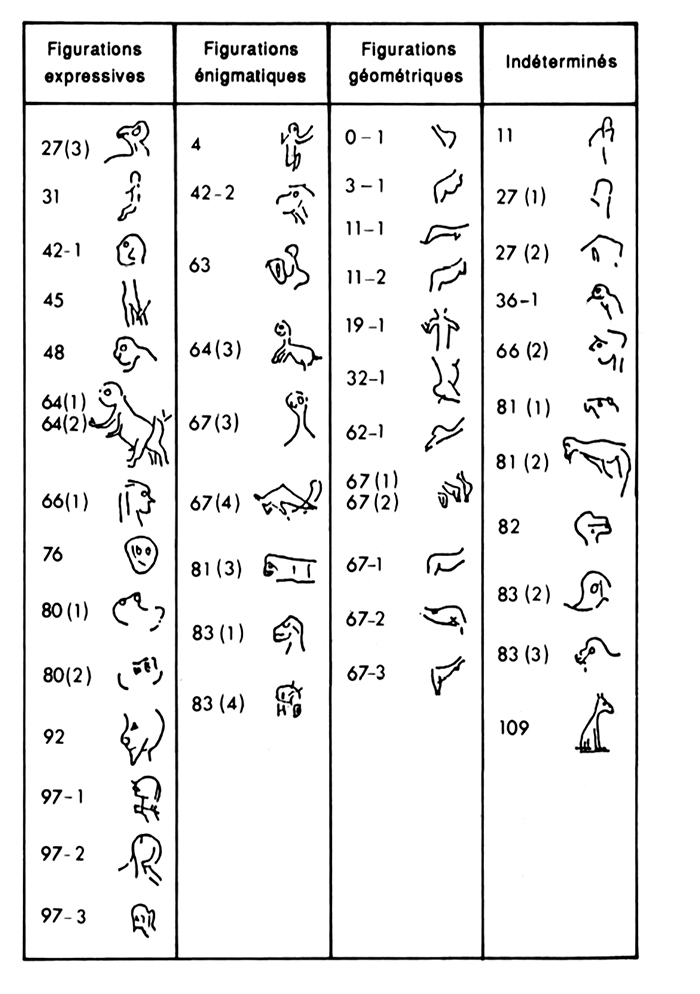 Figurations
expressives
27(3)
31
42-1
45
48
64(1)
64(2)
66(1)
76
80(1)
80(2)
92
97-1
97-2
97-3
Figurations
énigmatiques
4
42-2
63
64(3)
67(3)
67(4)
81(3)
83(1)
83(4)
Figurations
géométriques
0-1
3-1
11-1
11-2
19-1
32-1
62-1
67(1)
67(2)
67-1
67-2
67-3
Indéterminés
11
27(1)
27(2)
36-1
66(2)
81(1)
81(2)
82
83(2)
83(3)
109